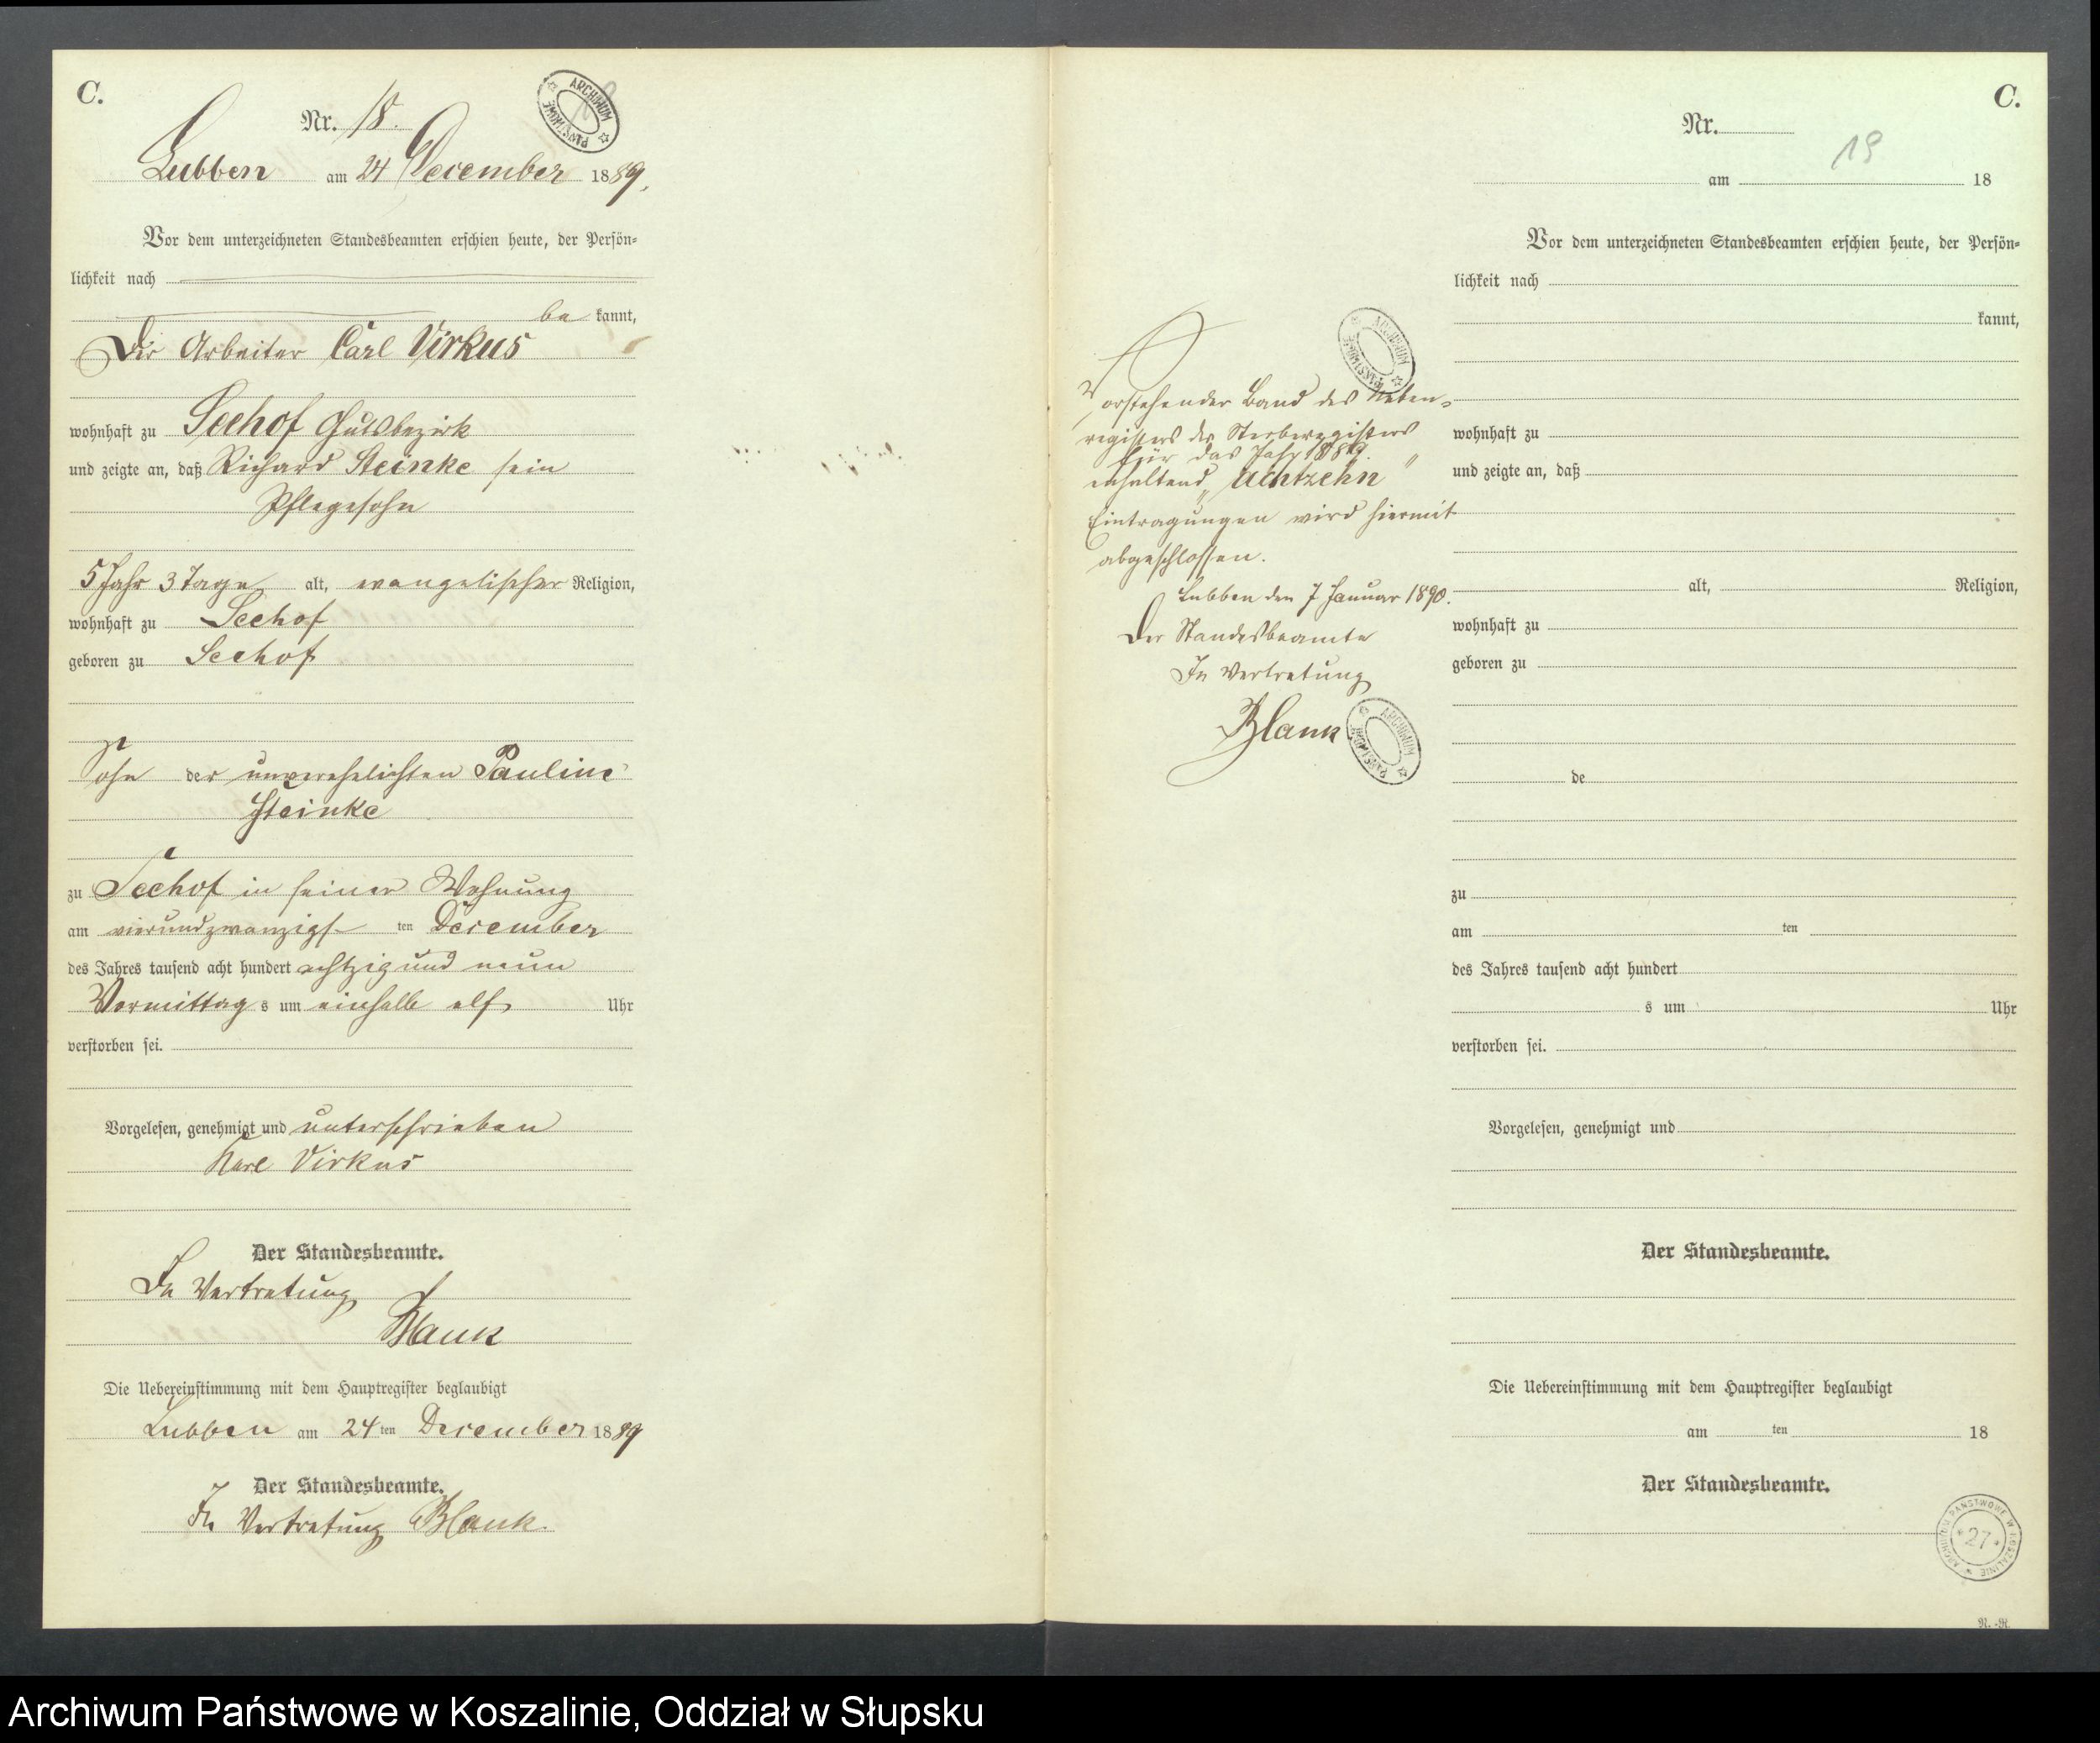 C.
Nr. 18.
ARCHIWUM PAŃSTWOWE
Lubben am 24 December 1889.
Vor dem unterzeichneten Standesbeamten erschien heute, der Persön-
lichkeit nach
be kannt,
Der Arbeiter Carl Virkus
wohnhaft zu Seehof Gutsbezirk
und zeigte an, daß Richard Steinke sein
Pflegesohn
5 Jahr 3 Tage alt, evangelischer Religion,
wohnhaft zu Seehof
geboren zu Seehof
Sohn der unverehelichten Pauline
Steinke
zu Seehof in seiner Wohnung
am vierundzwanzigs ten December
des Jahres tausend acht hundert achtzig und neun
Vormittag s um einhalb elf Uhr
verstorben sei.
Vorgelesen, genehmigt und unterschrieben
Karl Virkus
Der Standesbeamte.
In Vertretung
Blank
Die Uebereinstimmung mit dem Hauptregister beglaubigt
Lubben am 24 ten December 1889
Der Standesbeamte.
In Vertretung Blank.
ARCHIWUM PAŃSTWOWE
Vorstehender Band des Neben-
registers des Sterberegisters
für das Jahr 1889.
enthaltend „Achtzehn"
Eintragungen wird hiermit
abgeschlossen.
Lubben den 7 Januar 1890.
Der Standesbeamte
In Vertretung
Blank
ARCHIWUM PAŃSTWOWE
C.
Nr.
19
am 18
Vor dem unterzeichneten Standesbeamten erschien heute, der Persön-
lichkeit nach
kannt,
wohnhaft zu
und zeigte an, daß
alt, Religion,
wohnhaft zu
geboren zu
de
zu
am ten
des Jahres tausend acht hundert
s um Uhr
verstorben sei.
Vorgelesen, genehmigt und
Der Standesbeamte.
Die Uebereinstimmung mit dem Hauptregister beglaubigt
am ten 18
Der Standesbeamte.
ARCHIWUM PAŃSTWOWE W KOSZALINIE
* 27 *
R.-R.
Archiwum Państwowe w Koszalinie, Oddział w Słupsku